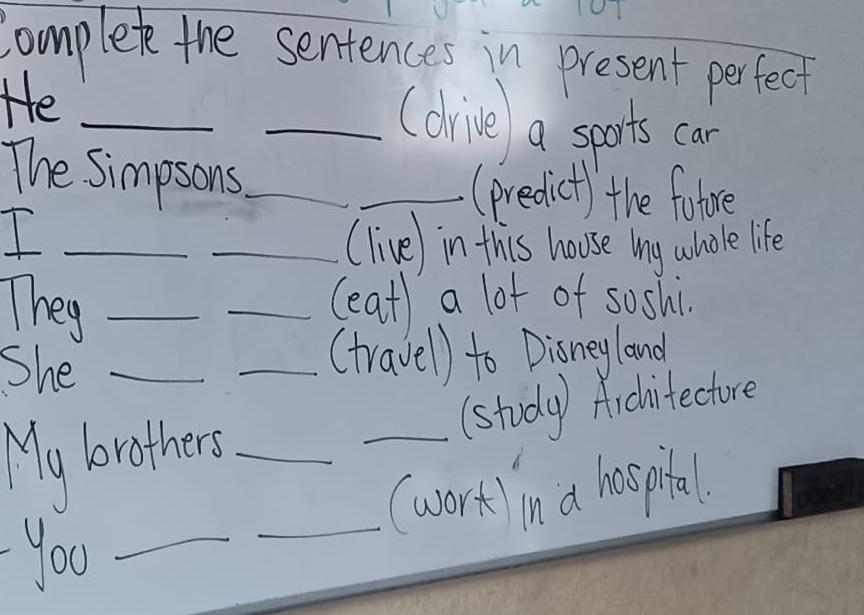 Complete the sentences in present perfect
He ____ ____ (drive) a sports car
The Simpsons ____ ____ (predict) the future
I ____ ____ (live) in this house my whole life
They ____ ____ (eat) a lot of sushi.
She ____ ____ (travel) to Disneyland
My brothers ____ ____ (study) Architecture
- You ____ ____ (work) in a hospital.